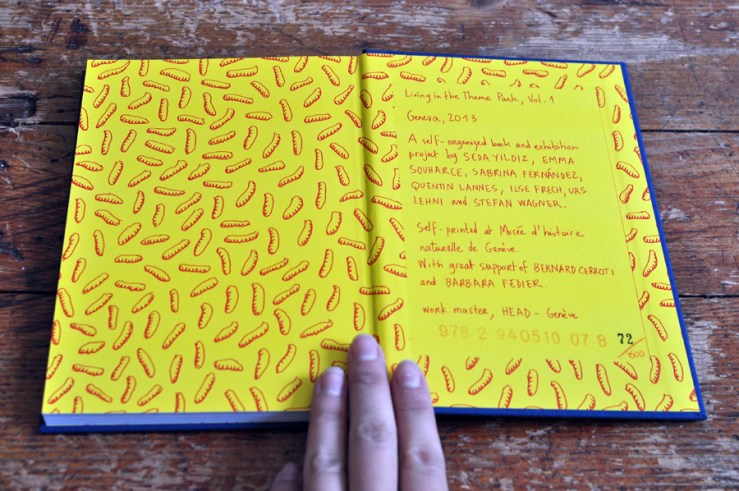 Living in the Theme Park, Vol. 1
Geneva, 2013
A self-organized book and exhibition
project by SEDA YILDIZ, EMMA
SOUHARCE, SABRINA FERNÁNDEZ,
QUENTIN LANNES, ILSE FRECH, URS
LEHNI and STEFAN WAGNER.
Self-printed at Musée d'histoire
naturelle de Genève.
With great support of BERNARD CERROTI
and BARBARA FEDIER.
work.master, HEAD - Genève
978 2 940510 07 8
72
/500